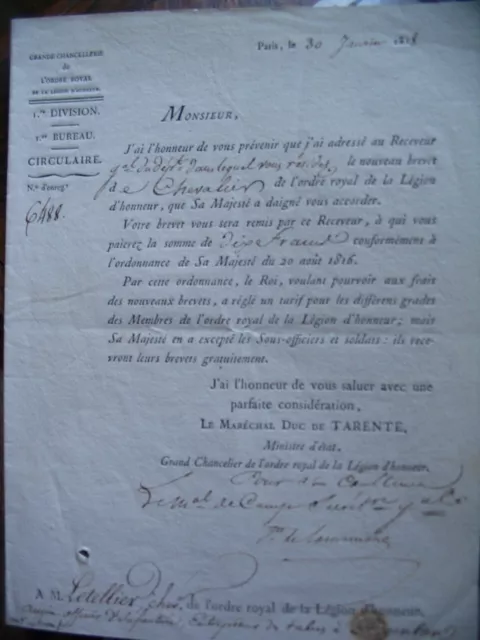 Paris, le 30 Janvier 1818
GRANDE CHANCELLERIE
de
L'ORDRE ROYAL
DE LA LÉGION D'HONNEUR.
1.re DIVISION.
1.er BUREAU.
CIRCULAIRE.
N.o d'enreg.t
6488.
MONSIEUR,
J'ai l'honneur de vous prévenir que j'ai adressé au Receveur
g.al du dép.t dans lequel vous résidez, le nouveau brevet
de Chevalier de l'ordre royal de la Légion
d'honneur, que Sa Majesté a daigné vous accorder.
Votre brevet vous sera remis par ce Receveur, à qui vous
paierez la somme de dix francs conformément à
l'ordonnance de Sa Majesté du 20 août 1816.
Par cette ordonnance, le Roi, voulant pourvoir aux frais
des nouveaux brevets, a réglé un tarif pour les différens grades
des Membres de l'ordre royal de la Légion d'honneur; mais
Sa Majesté en a excepté les Sous-officiers et soldats: ils rece-
vront leurs brevets gratuitement.
J'ai l'honneur de vous saluer avec une
parfaite considération,
LE MARÉCHAL DUC DE TARENTE,
Ministre d'état,
Grand Chancelier de l'ordre royal de la Légion d'honneur.
Pour son Excellence
Le m.al de Camp Secrét.re g.al
A M. Letellier Chev. de l'ordre royal de la Légion d'honneur,
d'infanterie, Entreposeur de tabacs à